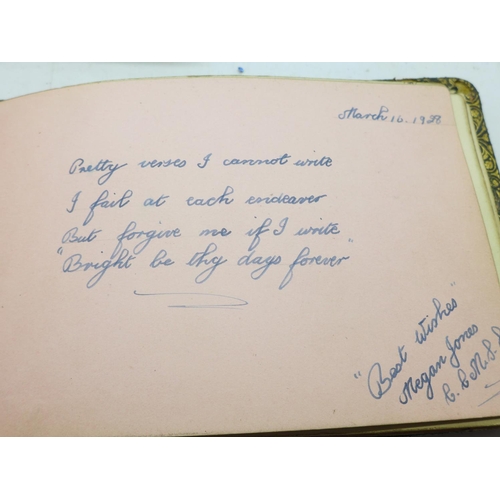 March. 16. 1928
Pretty verses I cannot write
I fail at each endeaver
But forgive me if I write
"Bright be thy days forever"
"Best Wishes"
Megan Jones